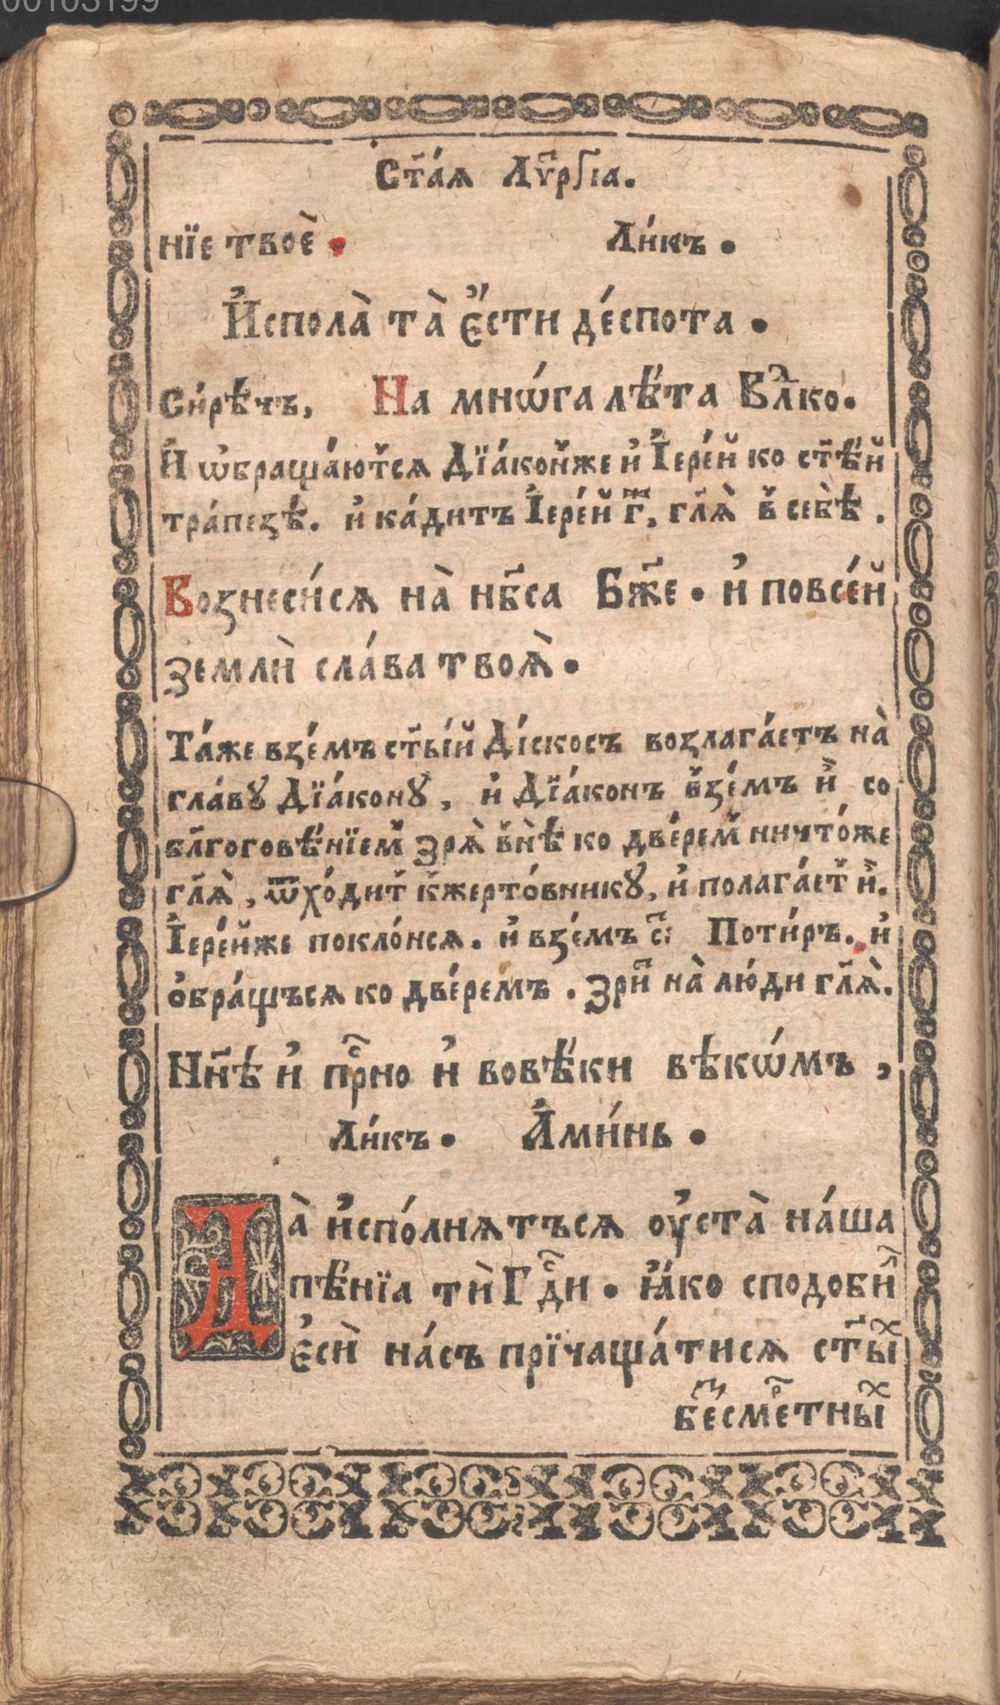 00103199
Ст҃а́ѧ Лѵ҃рг҃іа.
нїе твоѐ. Ли́къ.
И҆спола̀ та̀ є҆́сти де́спота.
Си́рѣчъ, На мнѡ́га лѣ́та Влⷣко.
И҆ ѡ҆браща́ютсѧ Дїа́конже и҆ І҆ере́й ко ст҃ѣ́й
тра́пезѣ. и҆ ка́дитъ І҆ере́й г҃ⷤ, гл҃ѧ̀ в себѣ̀.
Вознеси́сѧ на̀ нб҃са Бж҃е. и҆ повсе́й
землѝ сла́ва твоѧ̀.
Та́же взе́мъ ст҃ы́й Ді́скосъ возлага́етъ на̀
гла́ву Дїа́кону, и҆ Дїа́конъ взе́мъ и҆̀ со
бл҃гоговѣ́нїем зрѧ̀ внѣ̀ ко две́рем ничто́же
гл҃ѧ̀, ѿхо́дит кжерто́внику, и҆ полага́ет и҆̀.
І҆ере́йже покло́нсѧ. и҆ взе́мъ с҃: Поти́ръ. и҆
ѻбра́щъсѧ ко две́ремъ. зри҃ на̀ лю́ди гл҃ѧ̀.
Нн҃ѣ и҆ прⷭ҇но и҆ вовѣ́ки вѣкѡ́мъ,
Ли́къ. А҆ми́нь.
Да̀ и҆спо́лнѧтъсѧ оу҆ста̀ на́ша
пѣ́нїа тѝ Гдⷭ҇и. ꙗ҆́ко сподоби́
є҆сѝ на́съ прїчаща́тисѧ ст҃ыⷯ
бⷤе́смеⷬ҇тныⷯ